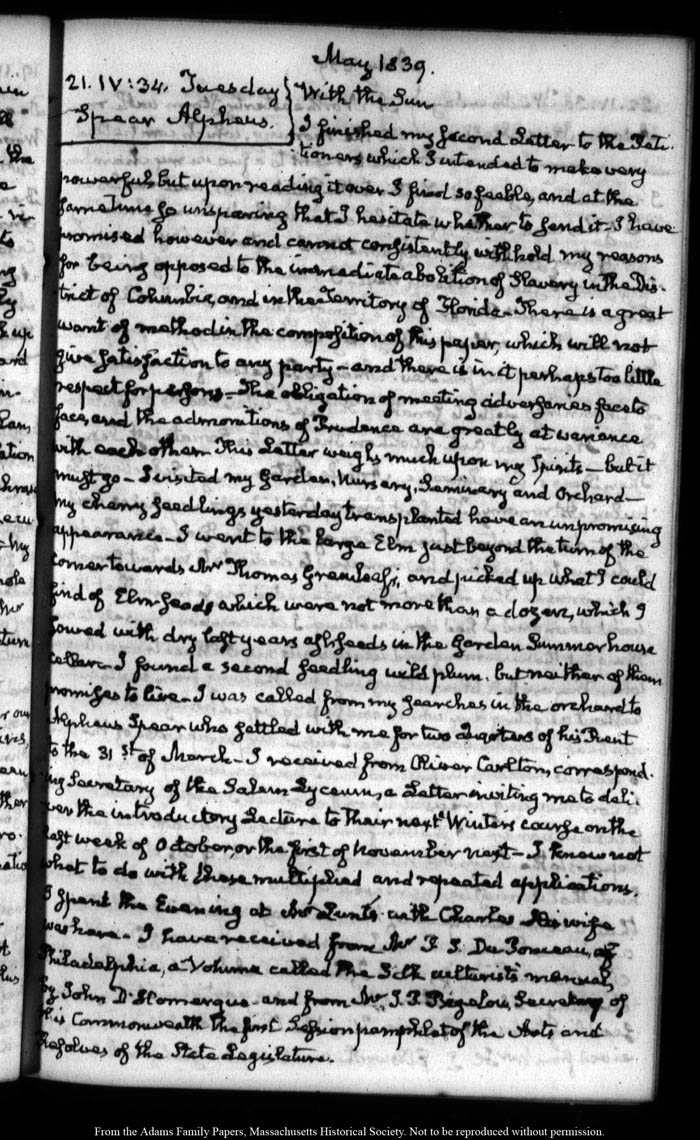 May 1839.
21. IV:34. Tuesday
Spear Alpheus.
With the Sun
I finished my second Letter to the Peti-
tioners which I intended to make very
powerful, but upon reading it over I find so feeble, and at the
same time so unsparing that I hesitate whether to send it. I have
promised however and cannot consistently withhold my reasons
for being opposed to the immediate abolition of Slavery in the Dis-
trict of Columbia, and in the Territory of Florida. There is a great
want of method in the composition of this paper, which will not
give satisfaction to any party — and there is in it perhaps too little
respect for persons — The obligation of meeting adversaries face to
face, and the admonitions of Prudence are greatly at variance
with each other. This Letter weighs much upon my Spirits — but it
must go — I visited my Garden, Nursery, Seminary and Orchard —
my cherry seedlings yesterday transplanted have an unpromising
appearance. I went to the large Elm just beyond the turn of the
corner towards Mr Thomas Greenleaf's, and picked up what I could
find of Elm seeds which were not more than a dozen, which I
sowed with dry last years ash seeds in the Garden Summer house
cellar. I found a second seedling wild plum. but neither of them
promises to live. I was called from my searches in the orchard to
Alpheus Spear who settled with me for two Quarters of his Rent
to the 31st of March — I received from Oliver Carlton, correspond-
ing Secretary of the Salem Lyceum, a Letter inviting me to deli-
ver the introductory Lecture to their next Winters course on the
last week of October, or the first of November next — I know not
what to do with these multiplied and repeated applications.
I spent the Evening at Mr Lunt's with Charles. His wife
was here. I have received from Mr P. S. Du Ponceau, of
Philadelphia, a Volume called the Silk culturists manual,
by John D'Homergue and from Mr J. P. Bigelow, Secretary of
this Commonwealth the first Session pamphlet of the Acts and
Resolves of the State Legislature.
From the Adams Family Papers, Massachusetts Historical Society. Not to be reproduced without permission.